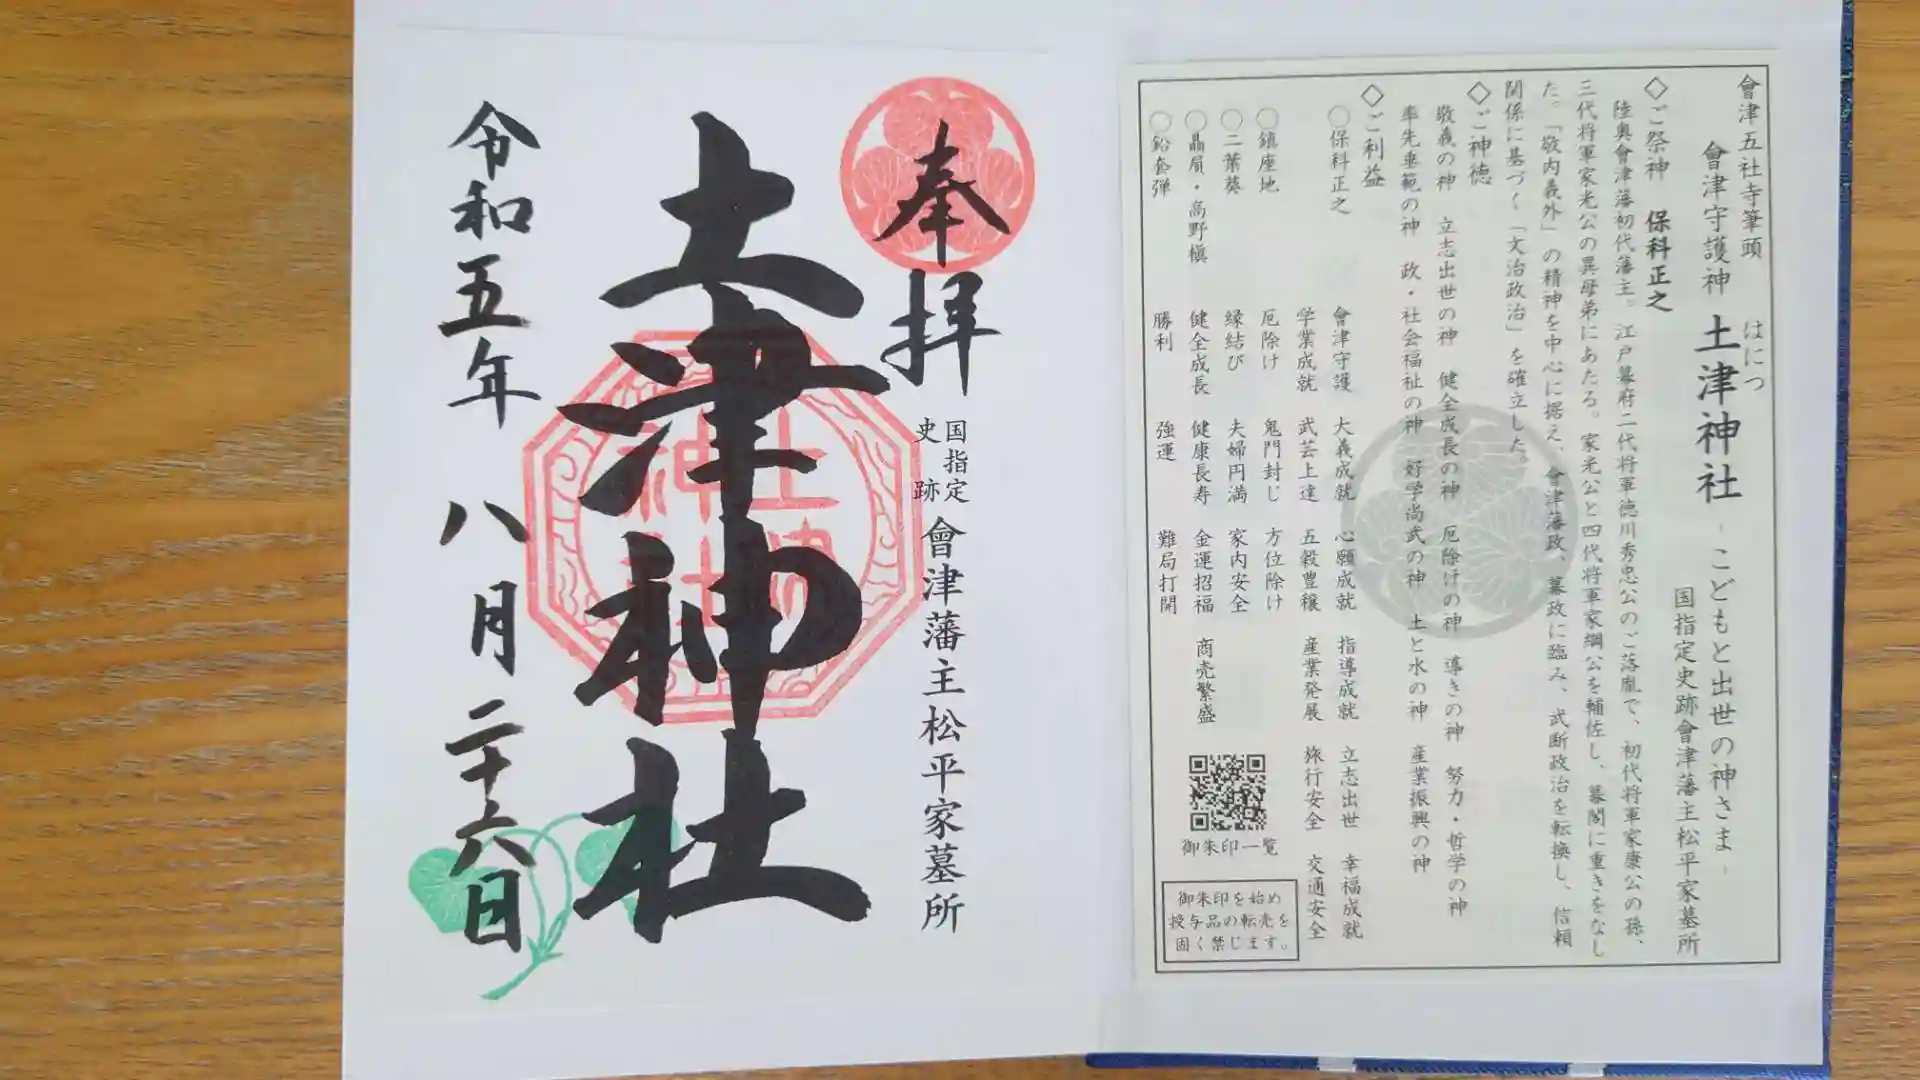 會津五社寺筆頭
會津守護神 土津神社 - こどもと出世の神さま -
はにつ
国指定史跡會津藩主松平家墓所
◇ご祭神 保科正之
陸奥會津藩初代藩主。江戸幕府二代将軍徳川秀忠公のご落胤で、初代将軍家康公の孫、
三代将軍家光公の異母弟にあたる。家光公と四代将軍家綱公を輔佐し、幕閣に重きをなし
た。「敬内義外」の精神を中心に据え、會津藩政、幕政に臨み、武断政治を転換し、信頼
関係に基づく「文治政治」を確立した。
◇ご神徳
敬義の神 立志出世の神 健全成長の神 厄除けの神 導きの神 努力・哲学の神
率先垂範の神 政・社会福祉の神 好学尚武の神 土と水の神 産業振興の神
◇ご利益
〇保科正之 會津守護 大義成就 心願成就 指導成就 立志出世 幸福成就
学業成就 武芸上達 五穀豊穣 産業発展 旅行安全 交通安全
〇鎮座地 厄除け 鬼門封じ 方位除け
〇二葉葵 縁結び 夫婦円満 家内安全
〇贔屓・高野槇 健全成長 健康長寿 金運招福 商売繁盛
〇鉛套弾 勝利 強運 難局打開
御朱印一覧
御朱印を始め
授与品の転売を
固く禁じます。
奉拝
国指定
史跡
會津藩主松平家墓所
土津神社
令和五年 八月二十六日